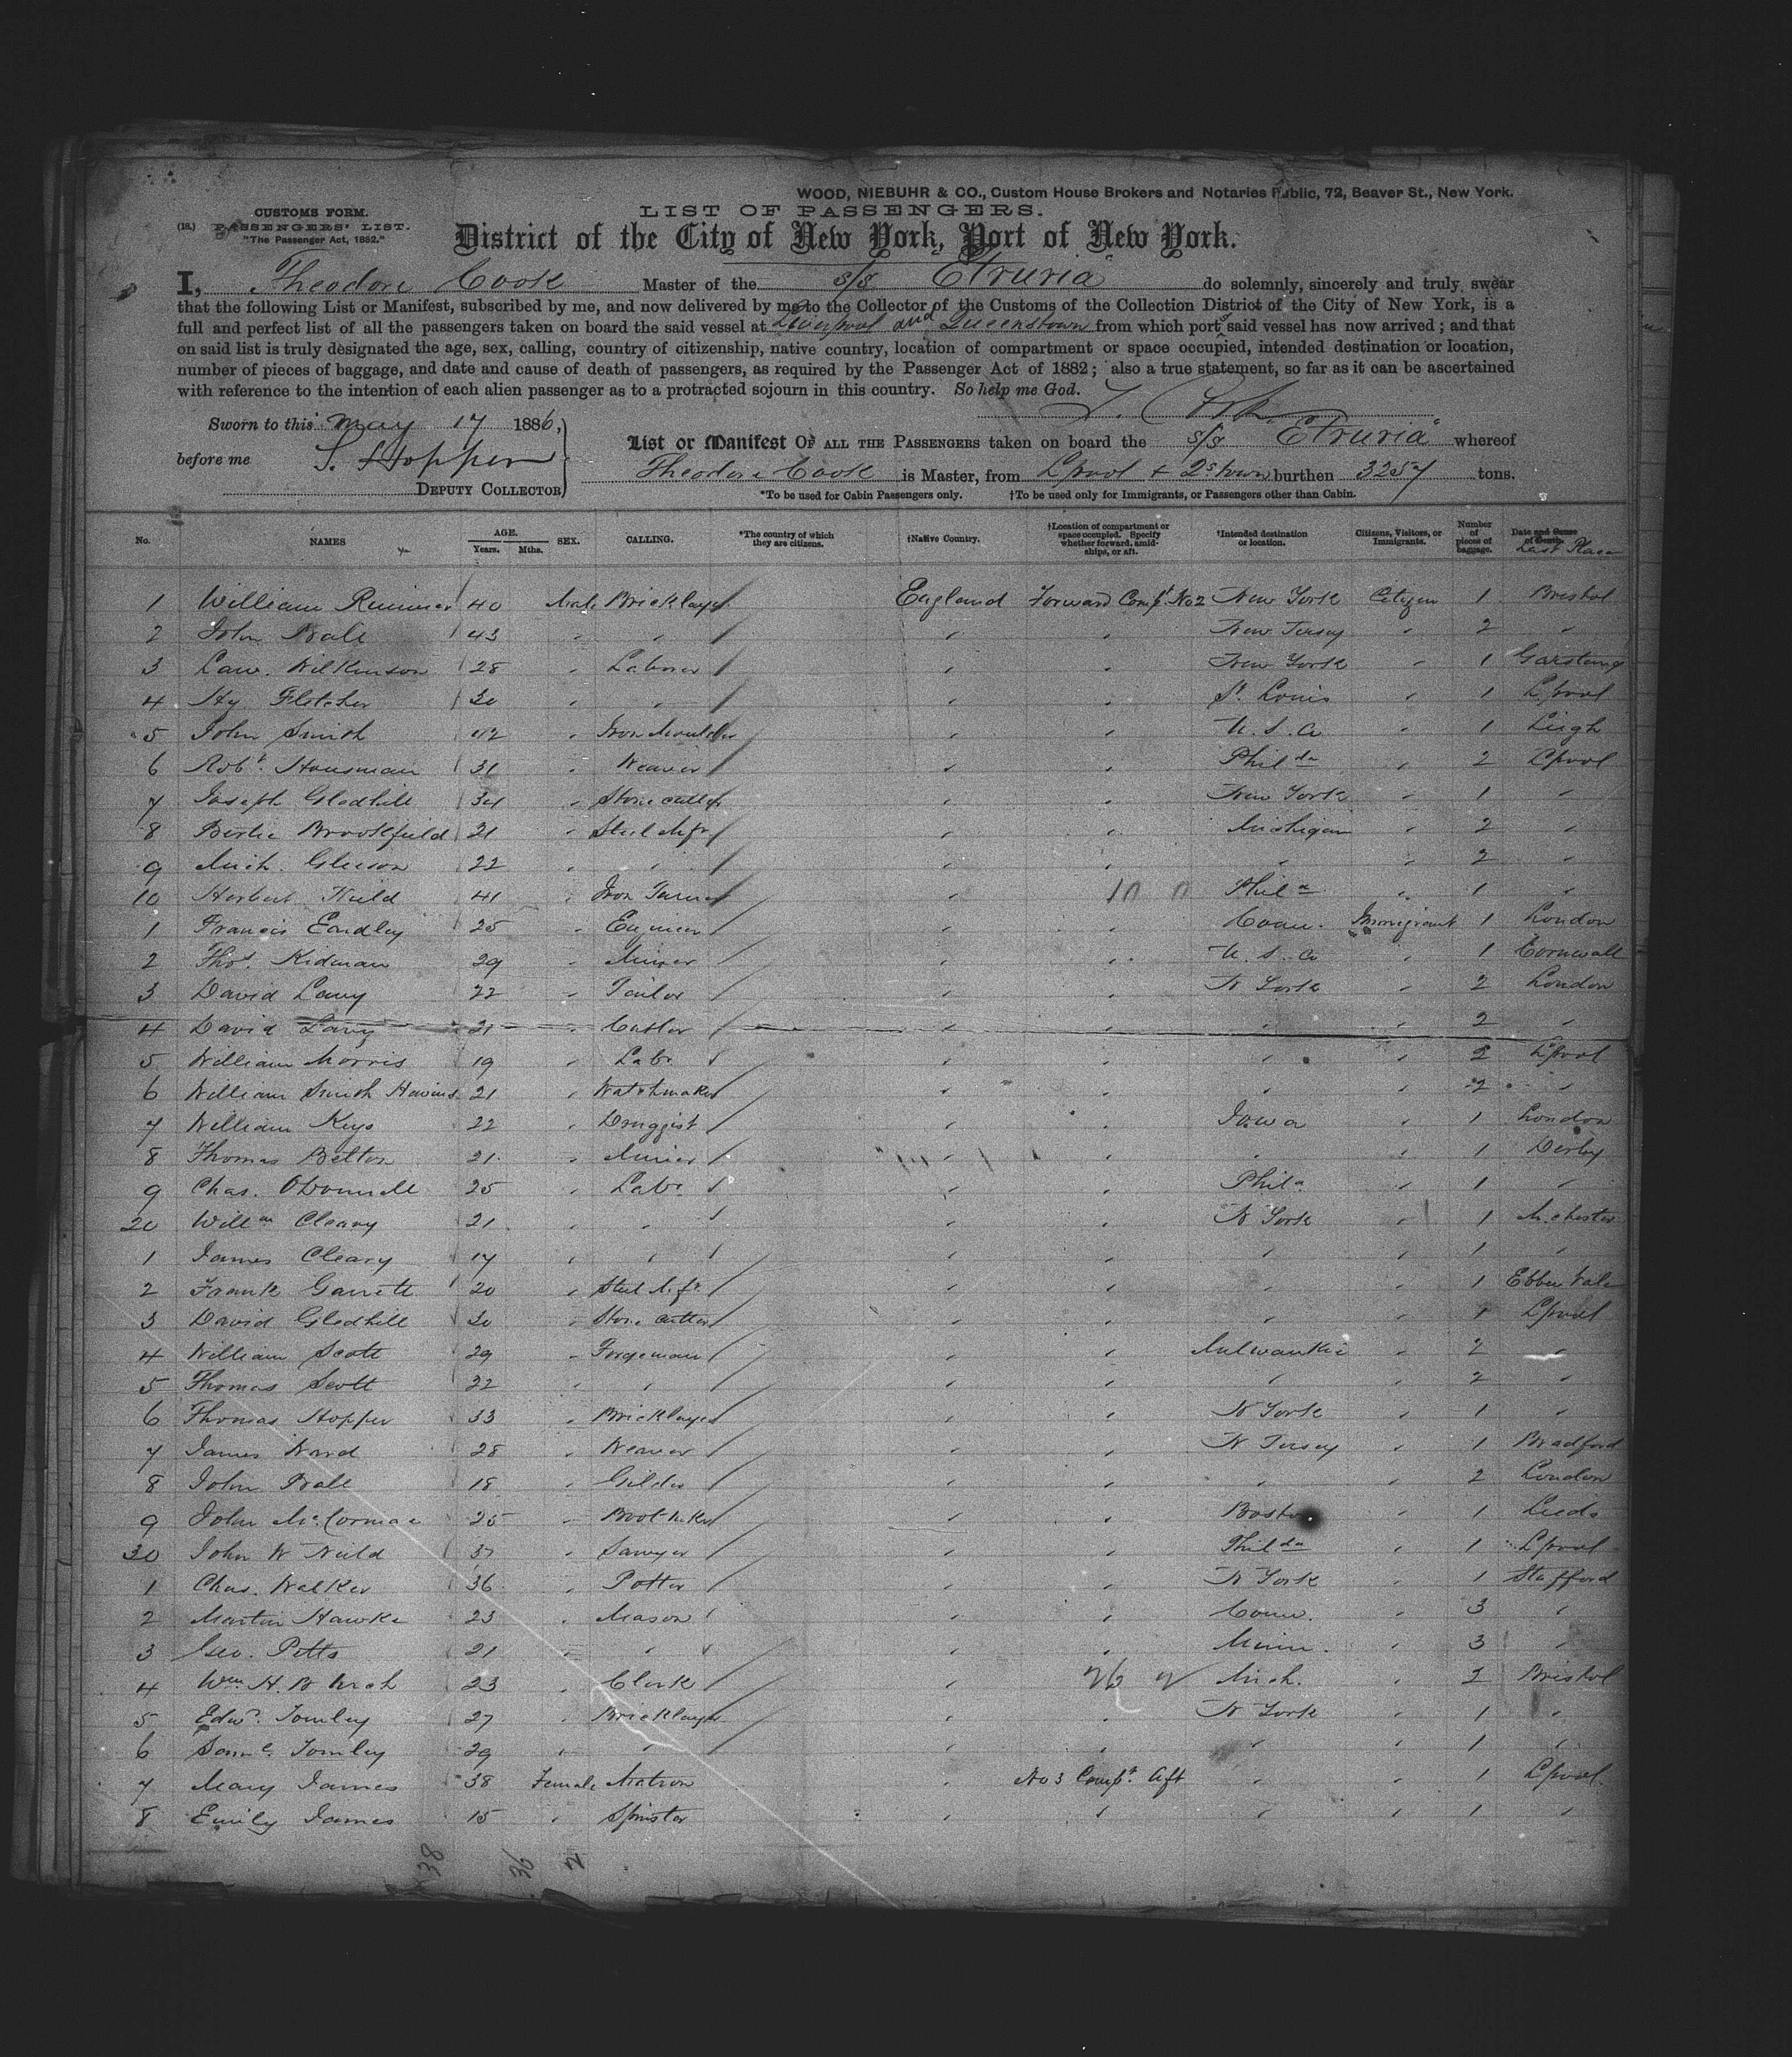 WOOD, NIEBUHR & CO., Custom House Brokers and Notaries Public, 72, Beaver St., New York.
LIST OF PASSENGERS.
CUSTOMS FORM.
(18.) PASSENGERS' LIST.
"The Passenger Act, 1882."
District of the City of New York, Port of New York.
I, Theodore Cook Master of the s/s Etruria do solemnly, sincerely and truly swear
that the following List or Manifest, subscribed by me, and now delivered by me to the Collector of the Customs of the Collection District of the City of New York, is a
full and perfect list of all the passengers taken on board the said vessel at Liverpool and Queenstown from which ports said vessel has now arrived; and that
on said list is truly designated the age, sex, calling, country of citizenship, native country, location of compartment or space occupied, intended destination or location,
number of pieces of baggage, and date and cause of death of passengers, as required by the Passenger Act of 1882; also a true statement, so far as it can be ascertained
with reference to the intention of each alien passenger as to a protracted sojourn in this country. So help me God.
T. Cook
Sworn to this May 17 1886,
before me S. Hopper
DEPUTY COLLECTOR
List or Manifest OF ALL THE PASSENGERS taken on board the s/s Etruria whereof
Theodore Cook is Master, from L'pool + Q'stown burthen 3257 tons.
*To be used for Cabin Passengers only. †To be used only for Immigrants, or Passengers other than Cabin.
No. NAMES AGE. Years. Mths. SEX. CALLING. *The country of which they are citizens. †Native Country. †Location of compartment or space occupied. Specify whether forward, amidships, or aft. †Intended destination or location. Citizens, Visitors, or Immigrants. Number of pieces of baggage. Date and Cause of Death. Last Place
1 William Rimmer 40 Male Bricklayer England Forward Compt. No 2 New York Citizen 1 Bristol
2 John Ball 43 " " " " New Jersey " 2 "
3 Law. Wilkinson 28 " Laborer " " New York " 1 Garstang
4 Hy Fletcher 30 " " " " St. Louis " 1 L'pool
5 John Smith 42 " Iron Moulder " " U. S. A " 1 Leigh
6 Robt. Housman 31 " Weaver " " Philda " 2 L'pool
7 Joseph Gledhill 34 " Stone cutter " " New York " 1 "
8 Bertie Brookfield 21 " Steel Mfr " " Michigan " 2 "
9 Mich. Gleeson 22 " " " " " " 2 "
10 Herbert Nield 41 " Iron Turner " 10 Phila " 1 "
1 Francis Eardley 25 " Engineer " " Conn. Immigrant 1 London
2 Thos. Kidman 29 " Miner " " U. S. A " 1 Cornwall
3 David Lavy 22 " Tailor " " N York " 2 London
4 David Lavy 21 " Cutler " " " " 2 "
5 William Morris 19 " Labr " " " " 2 L'pool
6 William Smith 21 " Watchmaker " " " " 2 "
7 William Keys 22 " Druggist " " Iowa " 1 London
8 Thomas Belton 21 " Miner " " " " 1 Derby
9 Chas. O'Donnell 25 " Labr " " Phila " 1 "
20 Willm Cleary 21 " " " " N York " 1 M.chester
1 James Cleary 17 " " " " " " 1 "
2 Frank Garrett 20 " Steel Mfr " " " " 1 Ebbw Vale
3 David Gledhill 30 " Stone cutter " " " " 1 L'pool
4 William Scott 29 " Forgeman " " Milwaukie " 2 "
5 Thomas Scott 22 " " " " " " 2 "
6 Thomas Hopper 33 " Bricklayer " " N York " 1 "
7 James Ward 28 " Weaver " " N Jersey " 1 Bradford
8 John Ball 18 " Gilder " " " " 2 London
9 John McCormac 25 " Boot mkr " " Boston " 1 Leeds
30 John W Nield 37 " Sawyer " " Philda " 1 L'pool
1 Chas. Walker 36 " Potter " " N York " 1 Stafford
2 Martin Hawke 23 " Mason " " Conn. " 3 "
3 Geo. Petts 21 " " " " Minn. " 3 "
4 Wm. H. B 23 " Clerk " 26 Mich. " 2 Bristol
5 Edwd. Tomley 27 " Bricklayer " " N York " 1 "
6 Saml. Tomley 29 " " " " " " 1 "
7 Mary James 38 Female Matron " No 3 Compt. Aft " " 1 L'pool
8 Emily James 15 " Spinster " " " " 1 "
38 36 2